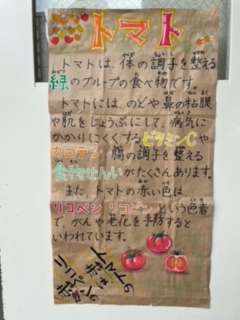 トマト
トマトは、体の調子を整える
緑のグループの食べ物です。
トマトには、のどや鼻の粘膜
や肌をじょうぶにして、病気に
かかりにくくする、ビタミンCや
カロテン、腸の調子を整える
食物せんいがたくさんあります。
また、トマトの赤い色は
リコペン(リコピン)という色素
で、がんや老化を予防すると
いわれています。
トマトの
赤色は